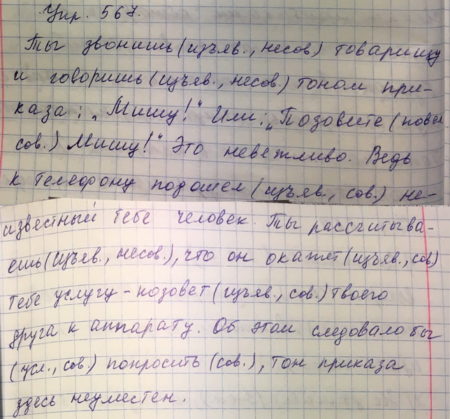 Упр. 567.
Ты звонишь (изъяв., несов) товарищу
и говоришь (изъяв., несов) тоном при-
каза: „Мишу!" Или: „Позовите (повел
сов.) Мишу!" Это невежливо. Ведь
к телефону подошел (изъяв., сов.) не-
известный тебе человек. Ты рассчитыва-
ешь (изъяв., несов.), что он окажет (изъяв., сов)
тебе услугу - позовет (изъяв., сов.) твоего
друга к аппарату. Об этом следовало бы
(усл., сов) попросить (сов.), тон приказа
здесь неуместен.